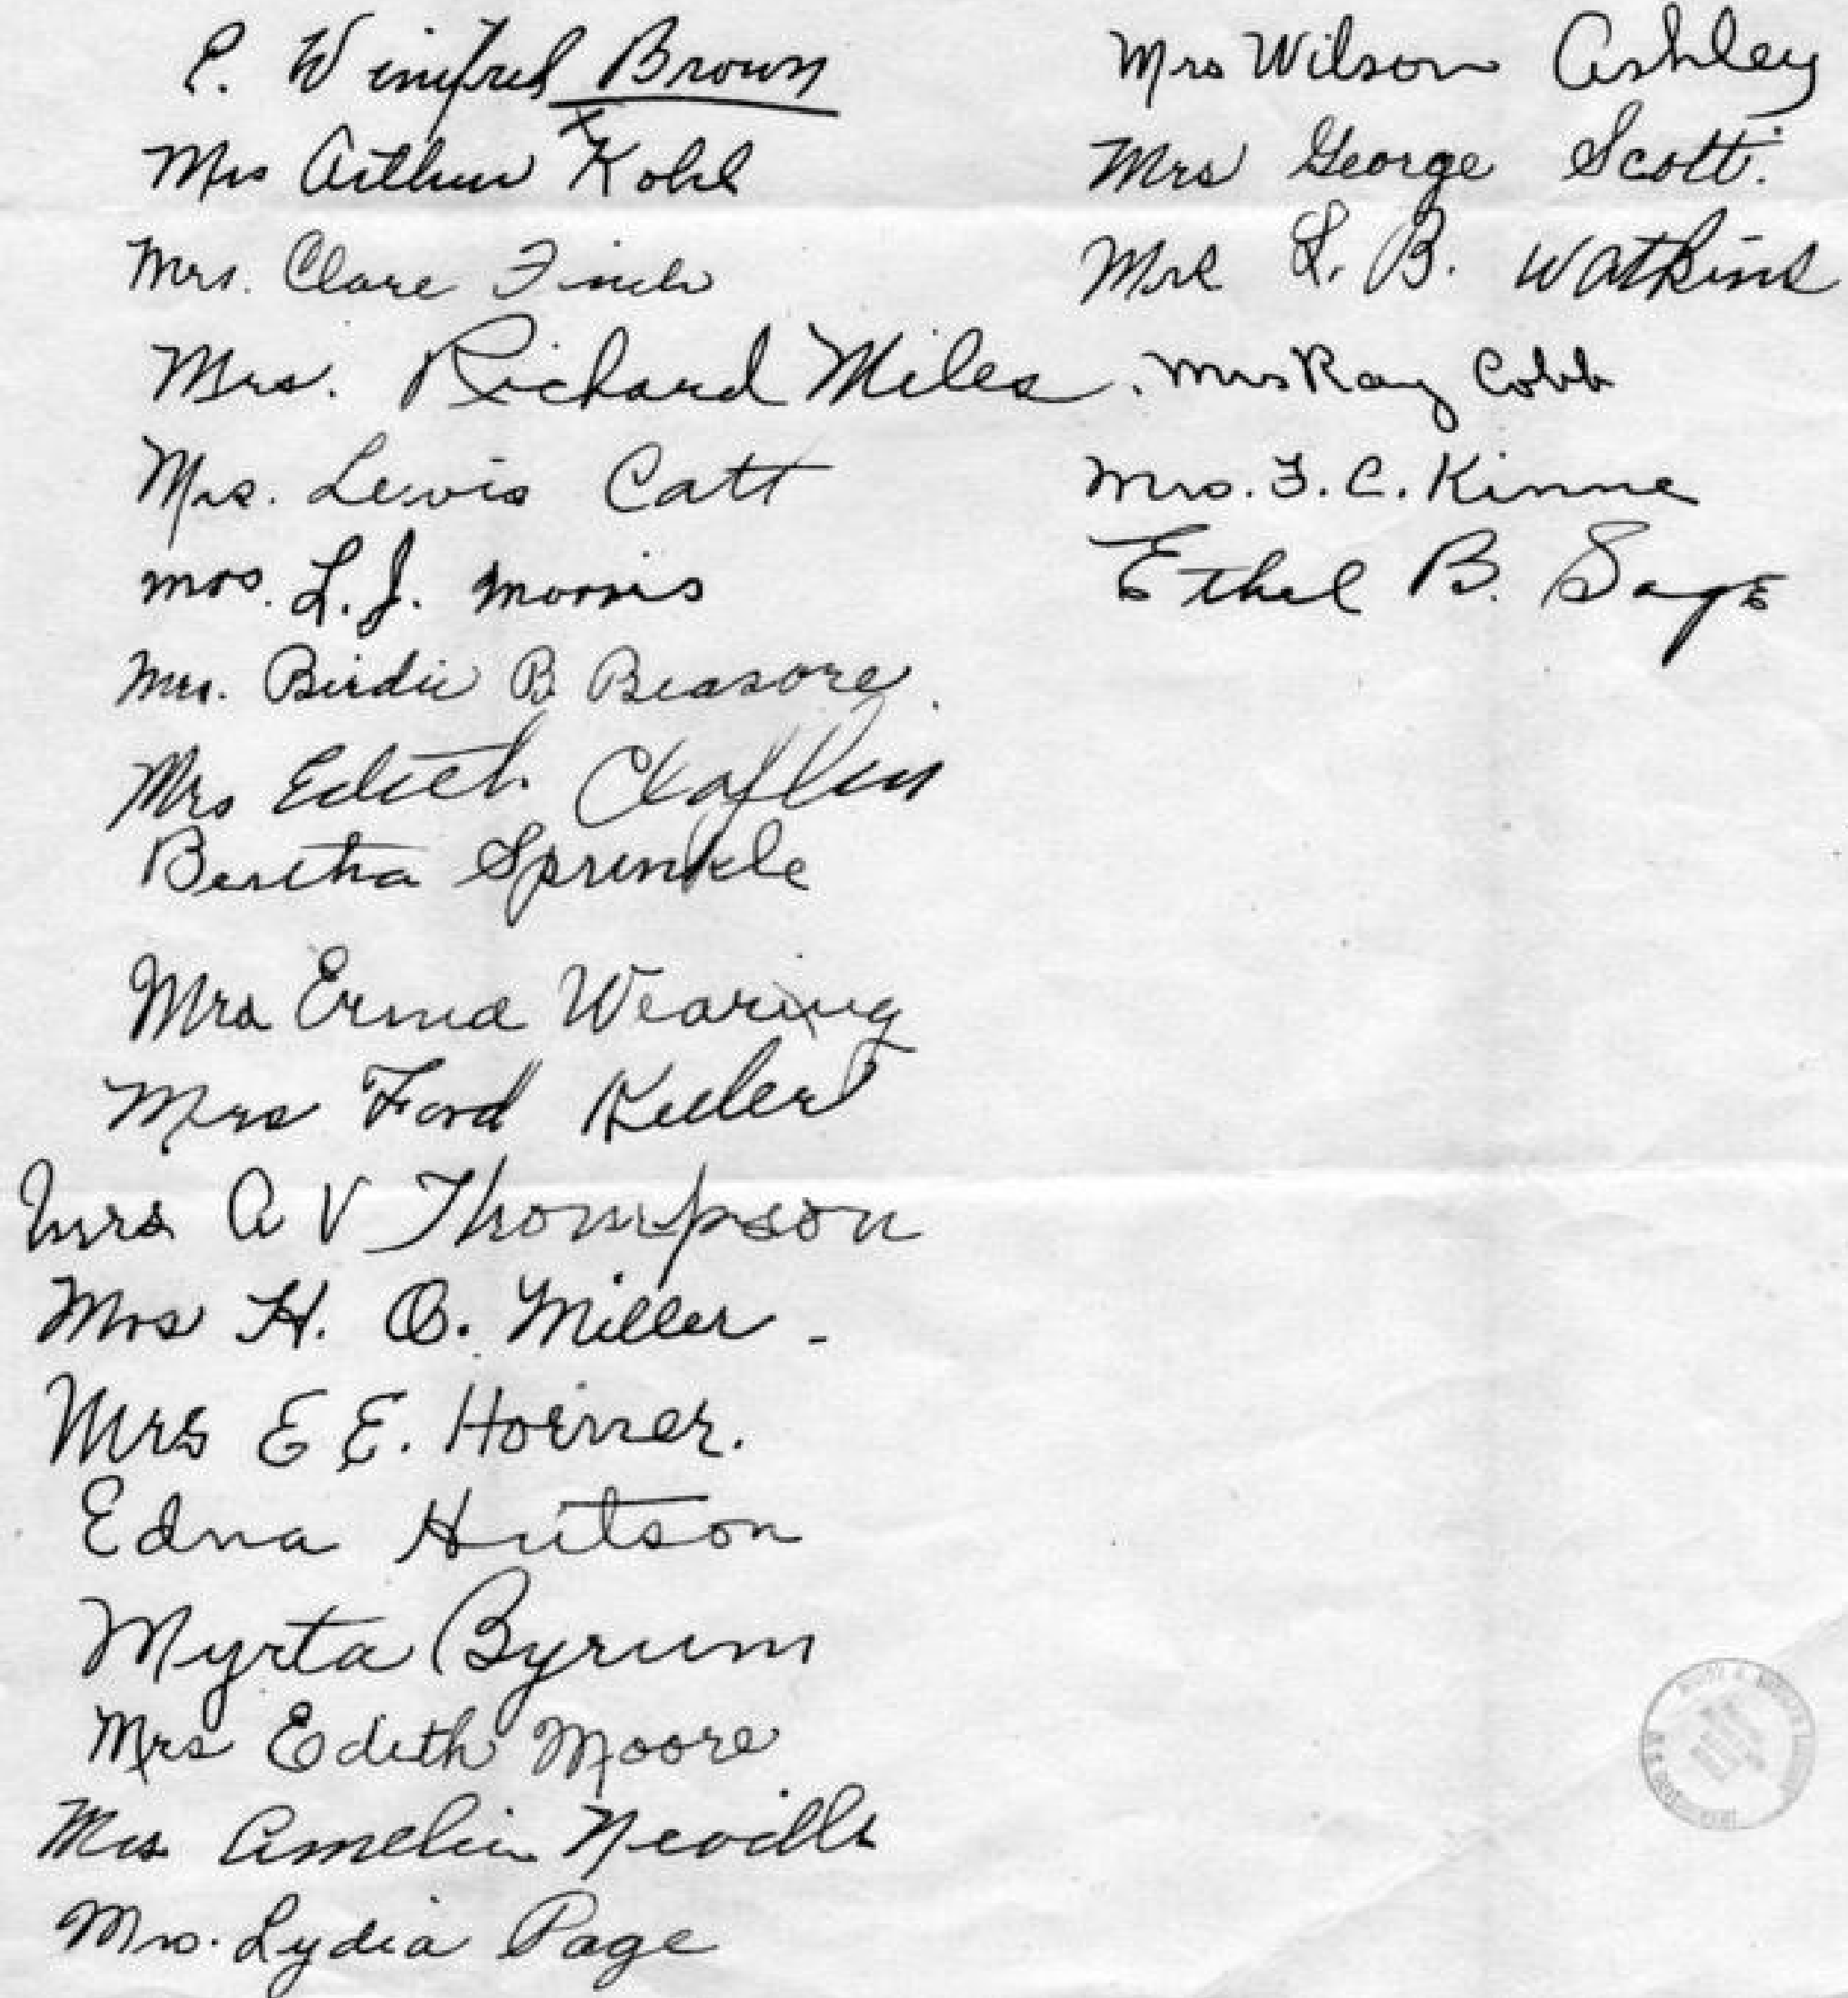 P. Winifred Brown
Mrs Arthur Kohl
Mrs. Clare Finch
Mrs. Richard Miles.
Mrs. Lewis Catt
Mrs. L. J. Morris
Mrs. Birdie B Beasore.
Mrs Edith Claflin
Bertha Sprinkle
Mrs Erma Wearing
Mrs Ford Keeler
Mrs A V Thompson
Mrs H. O. Miller -
Mrs E E. Horner.
Edna Hutson
Myrta Byrum
Mrs Edith Moore
Mrs Amelia Neville
Mrs. Lydia Page
Mrs Wilson Ashley
Mrs George Scott.
Mrs L. B. Watkins
Mrs Ray Cobb
Mrs. F. C. Kinne
Ethel B. Sage